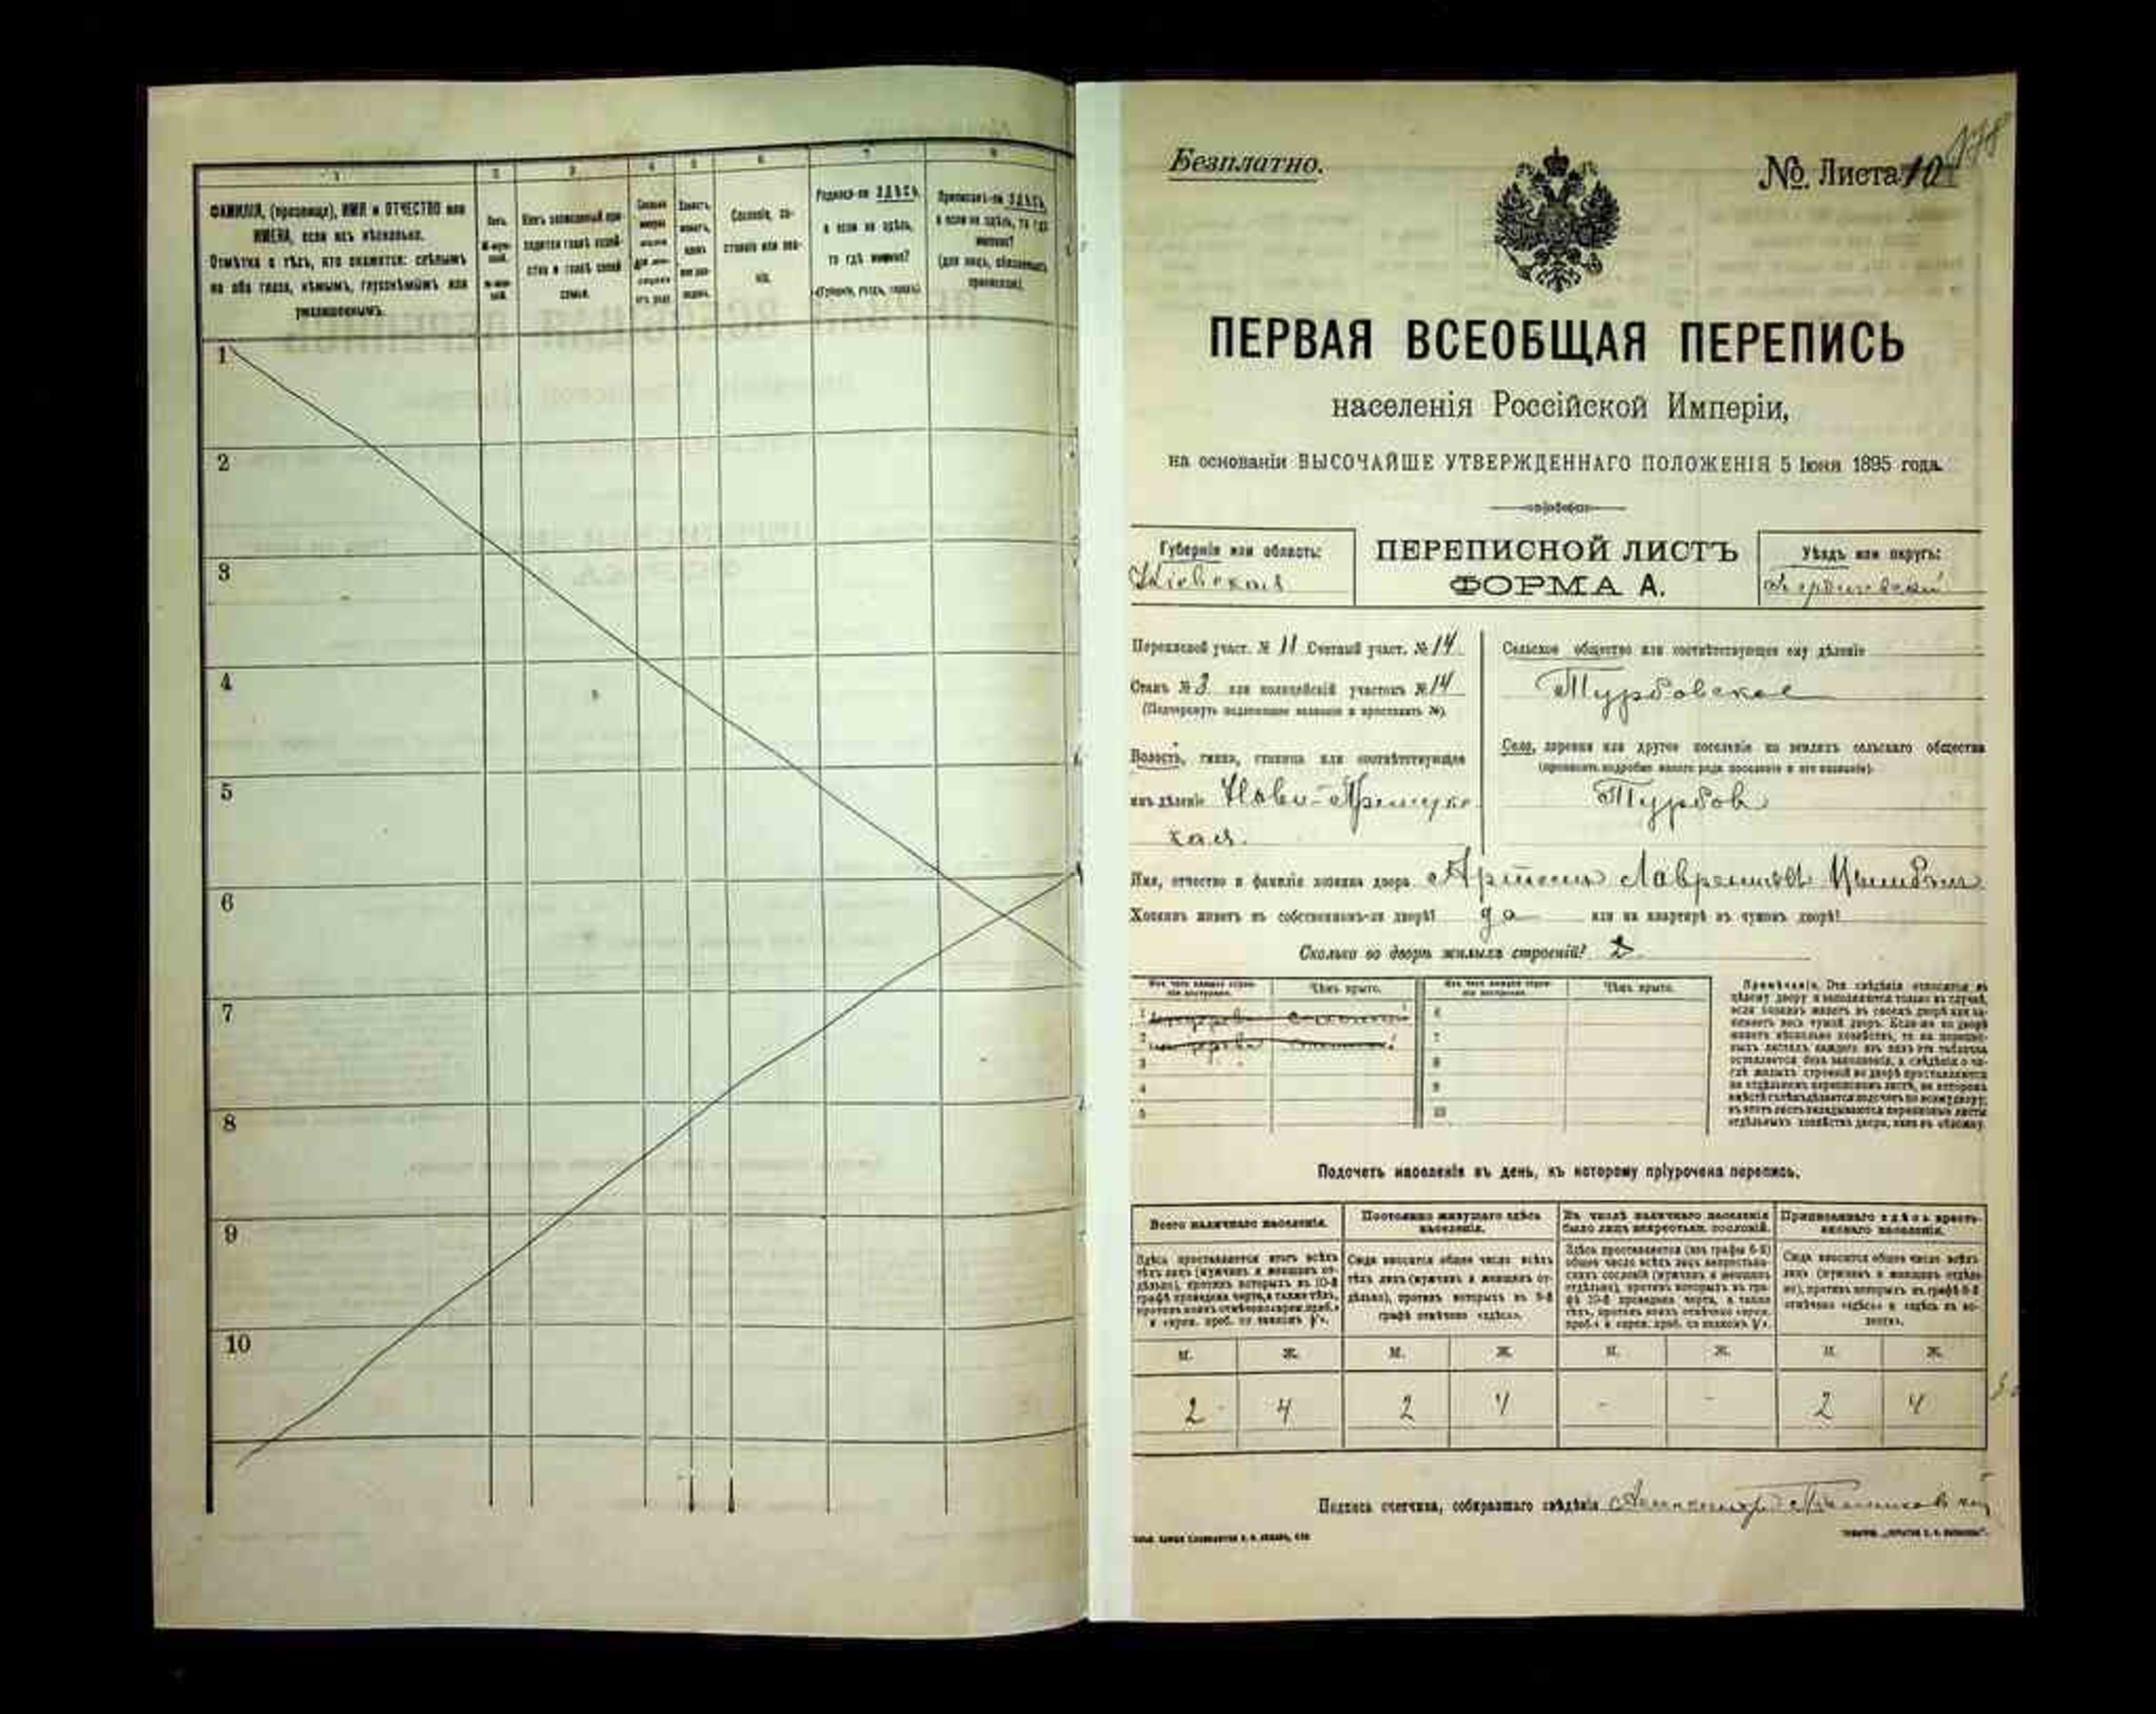 1
2
3
4
5
6
7
8
ФАМИЛІЯ, (прозвище), ИМЯ и ОТЧЕСТВО или
ИМЕНА, если ихъ нѣсколько.
Отмѣтка о тѣхъ, кто окажется: слѣпымъ
на оба глаза, нѣмымъ, глухонѣмымъ или
умалишеннымъ.
Полъ.
Сословіе, со-
стояніе или зва-
ніе.
Родился-ли ЗДѢСЬ,
а если не здѣсь,
то гдѣ именно?
(Губернія, уѣздъ, городъ)
Приписанъ-ли ЗДѢСЬ,
а если не здѣсь, то гдѣ
именно?
(для лицъ, обязанныхъ
припискою).
1
2
3
4
5
6
7
8
9
10
Безплатно.
№ Листа 10
178
ПЕРВАЯ ВСЕОБЩАЯ ПЕРЕПИСЬ
населенія Россійской Имперіи,
на основаніи ВЫСОЧАЙШЕ УТВЕРЖДЕННАГО ПОЛОЖЕНІЯ 5 Іюня 1895 года.
Губернія или область:
Кіевская
ПЕРЕПИСНОЙ ЛИСТЪ
ФОРМА А.
Уѣздъ или округъ:
Бердичевскій
Переписной участ. № 11 Счетный участ. № 14
Станъ № 3 или полицейскій участокъ № 14
(Подчеркнуть подлежащее названіе и проставить №).
Волость, гмина, станица или соотвѣтствующее
имъ дѣленіе Ново-Прилук
ская.
Сельское общество или соотвѣтствующее ему дѣленіе
Турбовское
Село, деревня или другое поселеніе на земляхъ сельскаго общества
(прописать подробно какого рода поселеніе и его названіе).
Турбов
Имя, отчество и фамилія хозяина двора
Хозяинъ живетъ въ собственномъ-ли дворѣ? да или на квартирѣ въ чужомъ дворѣ?
Сколько во дворѣ жилыхъ строеній? 2
Изъ чего каждое строе-
ніе построено.
Чѣмъ крыто.
Изъ чего каждое строе-
ніе построено.
Чѣмъ крыто.
1
2
3
4
5
6
7
8
9
10
Примѣчаніе. Эти свѣдѣнія относятся къ
цѣлому двору и заполняются только въ случаѣ,
если хозяинъ живетъ въ своемъ дворѣ или за-
нимаетъ весь чужой дворъ. Если же во дворѣ
имѣетъ нѣсколько хозяйствъ, то на перепис-
ныхъ листахъ каждаго изъ нихъ эта табличка
оставляется безъ заполненія, а свѣдѣнія о чи-
слѣ жилыхъ строеній во дворѣ проставляются
на отдѣльномъ переписномъ листѣ, на которомъ
вмѣстѣ съ тѣмъ дѣлается подсчетъ по всему двору;
въ этотъ листъ вкладываются переписные листы
отдѣльныхъ хозяйствъ двора, какъ въ обложку.
Подсчетъ населенія въ день, къ которому пріурочена перепись.
Всего наличнаго населенія.
Постоянно живущаго здѣсь
населенія.
Въ числѣ наличнаго населенія
было лицъ некрестьян. сословій.
Приписаннаго здѣсь кресть-
янскаго населенія.
Здѣсь проставляется итогъ всѣхъ
тѣхъ лицъ (мужчинъ и женщинъ от-
дѣльно), противъ которыхъ въ 10-й
графѣ проведена черта, а также тѣхъ,
противъ коихъ отмѣчено «врем. преб.»
Сюда вносится общее число всѣхъ
тѣхъ лицъ (мужчинъ и женщинъ от-
дѣльно), противъ которыхъ въ 9-й
графѣ отмѣчено «здѣсь».
Здѣсь проставляется (изъ графы 6-й)
общее число всѣхъ лицъ некрестьян-
скихъ сословій (мужчинъ и женщинъ
отдѣльно), противъ которыхъ въ гра-
фѣ 10-й проведена черта, а также
тѣхъ, противъ коихъ отмѣчено «врем.
Сюда вносится общее число всѣхъ
лицъ (мужчинъ и женщинъ отдѣль-
но), противъ которыхъ въ графѣ 8-й
отмѣчено «здѣсь» и «здѣсь въ во-
лости».
М. Ж. М. Ж. М. Ж. М. Ж.
2 4 2 4 - - 2 4
Подпись счетчика, собиравшаго свѣдѣнія